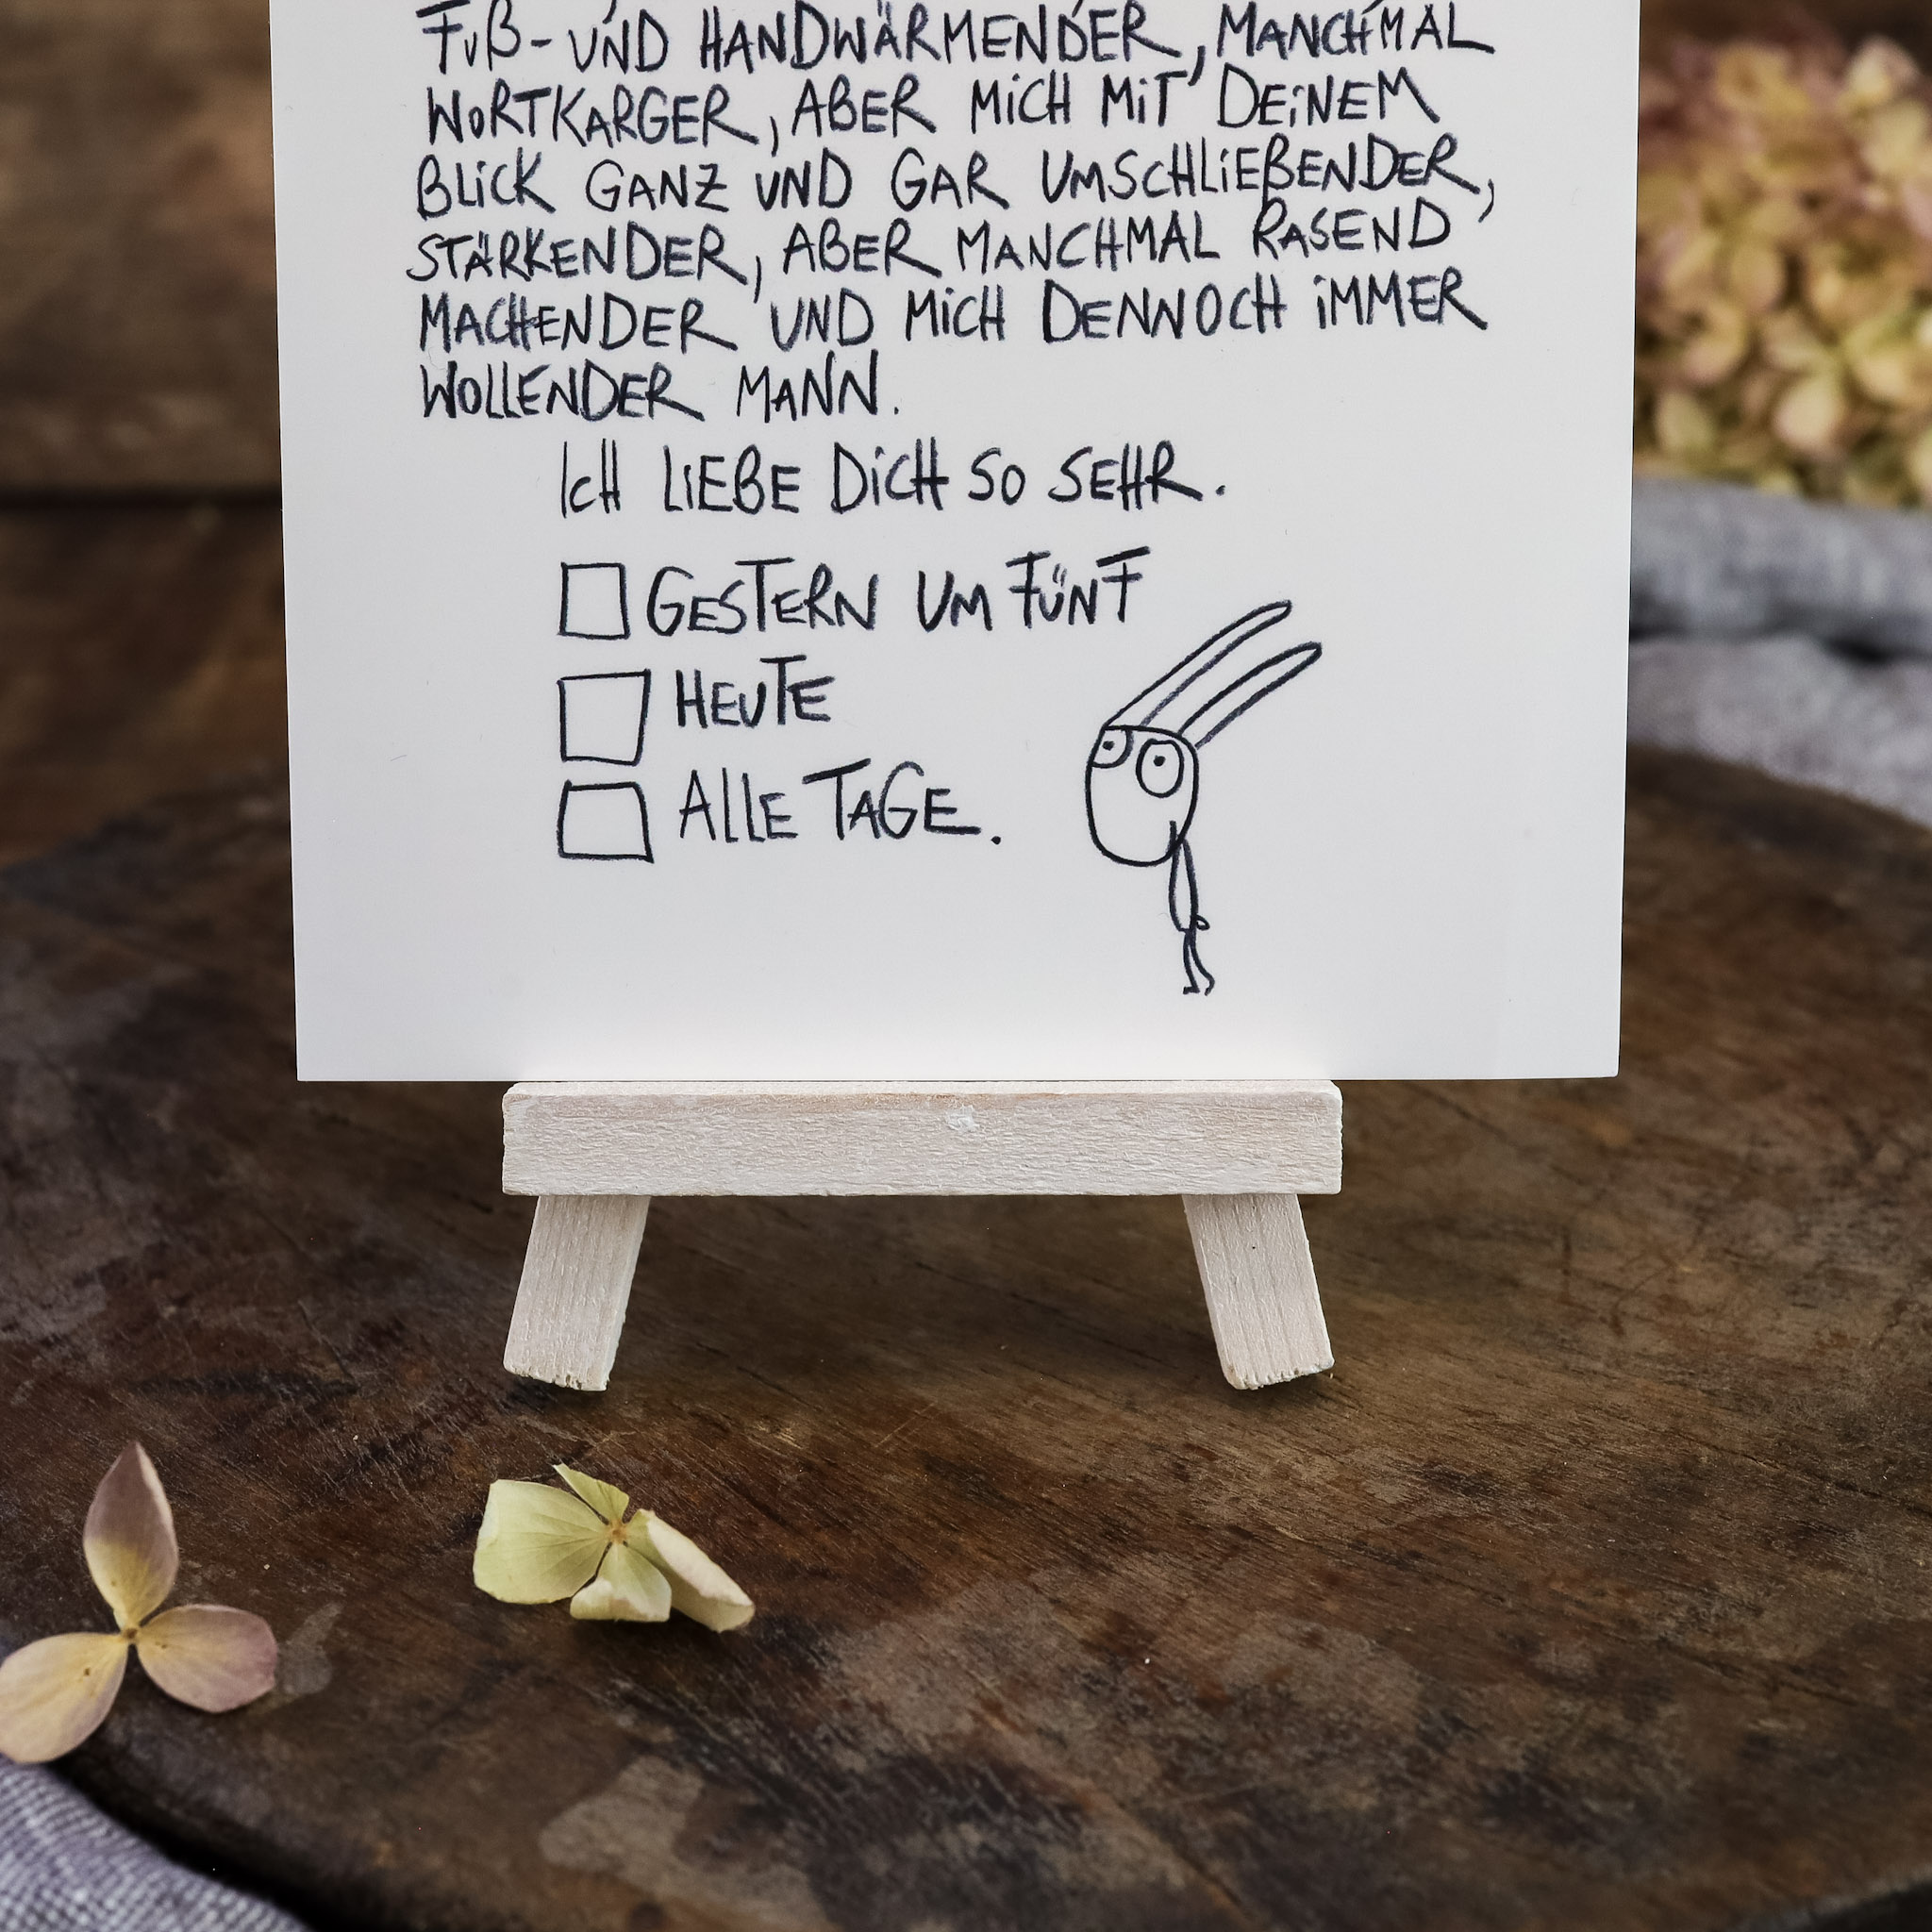 FUß- UND HANDWÄRMENDER, MANCHMAL
WORTKARGER, ABER MICH MIT DEINEM
BLICK GANZ UND GAR UMSCHLIEßENDER,
STÄRKENDER, ABER MANCHMAL RASEND
MACHENDER UND MICH DENNOCH IMMER
WOLLENDER MANN.
ICH LIEBE DICH SO SEHR.
GESTERN UM FÜNF
HEUTE
ALLE TAGE.